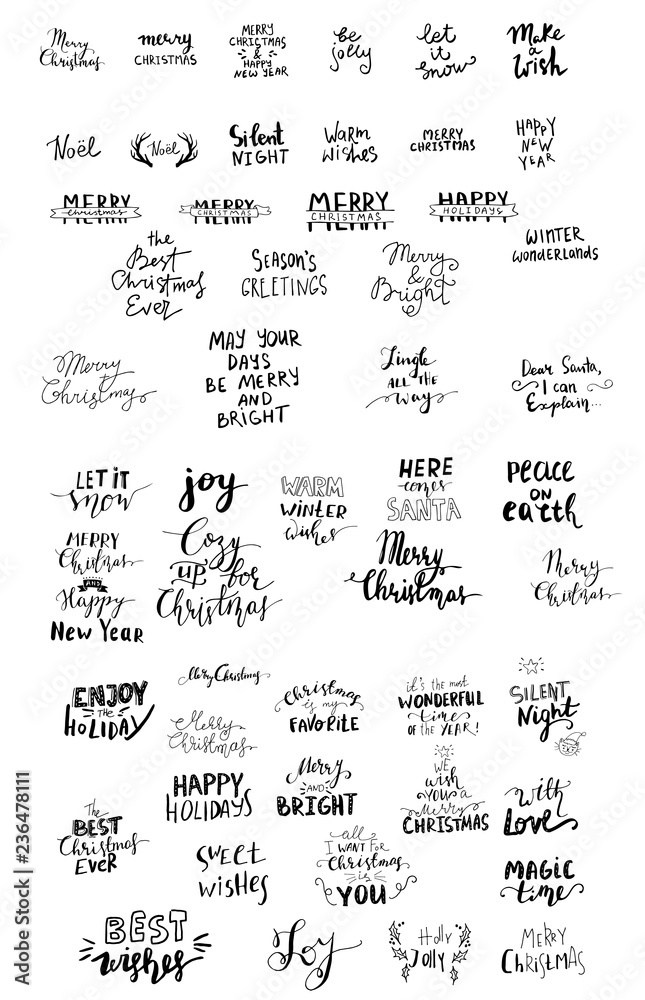 Merry
Christmas
merry
CHRISTMAS
MERRY
CHRISTMAS
&
HAPPY
NEW YEAR
be
jolly
let
it
snow
Make
a
Wish
Noël
Noël
Silent
NIGHT
Warm
wishes
MERRY
CHRISTMAS
HAPPY
NEW
YEAR
MERRY
Christmas
MERRY
CHRISTMAS
MERRY
CHRISTMAS
HAPPY
HOLIDAYS
the
Best
Christmas
Ever
SEASON'S
GREETINGS
Merry
&
Bright
WINTER
wonderlands
Merry
Christmas
MAY YOUR
DAYS
BE MERRY
AND
BRIGHT
Jingle
ALL THE
Way
Dear Santa,
I can
Explain...
LET IT
snow
joy
WARM
WINTER
wishes
HERE
comes
SANTA
PEACE
ON
earth
MERRY
Christmas
AND
Happy
New Year
Cozy
up for
Christmas
Merry
Christmas
Merry
Christmas
ENJOY
THE
HOLIDAY
Merry Christmas
Merry
Christmas
Christmas
is my
FAVORITE
it's the most
WONDERFUL
time
OF THE YEAR!
SILENT
Night
HAPPY
HOLIDAYS
Merry
AND
BRIGHT
WE
wish
YOU a
Merry
CHRISTMAS
with
LOVE
The
BEST
Christmas
EVER
SWEET
wishes
all
I WANT FOR
Christmas
is
YOU
MAGIC
time
BEST
wishes
Joy
Holly
Jolly
MERRY
CHRISTMAS
Adobe Stock | #236478111